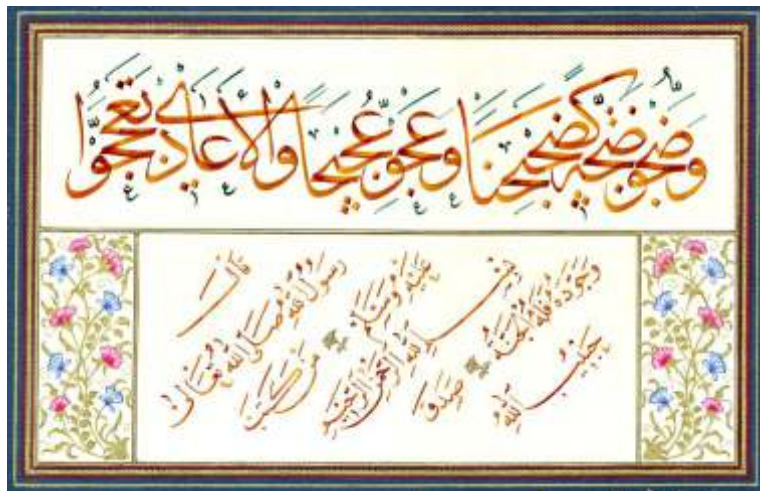 وضجوا ضجة كضجيجنا وعجوا عجيجا والأعادي تعججوا
قال
رسول الله صلى الله تعالى
عليه وسلم من كتب
بسم الله الرحمن الرحيم
وجوده فله الجنة صدق
حبيب الله